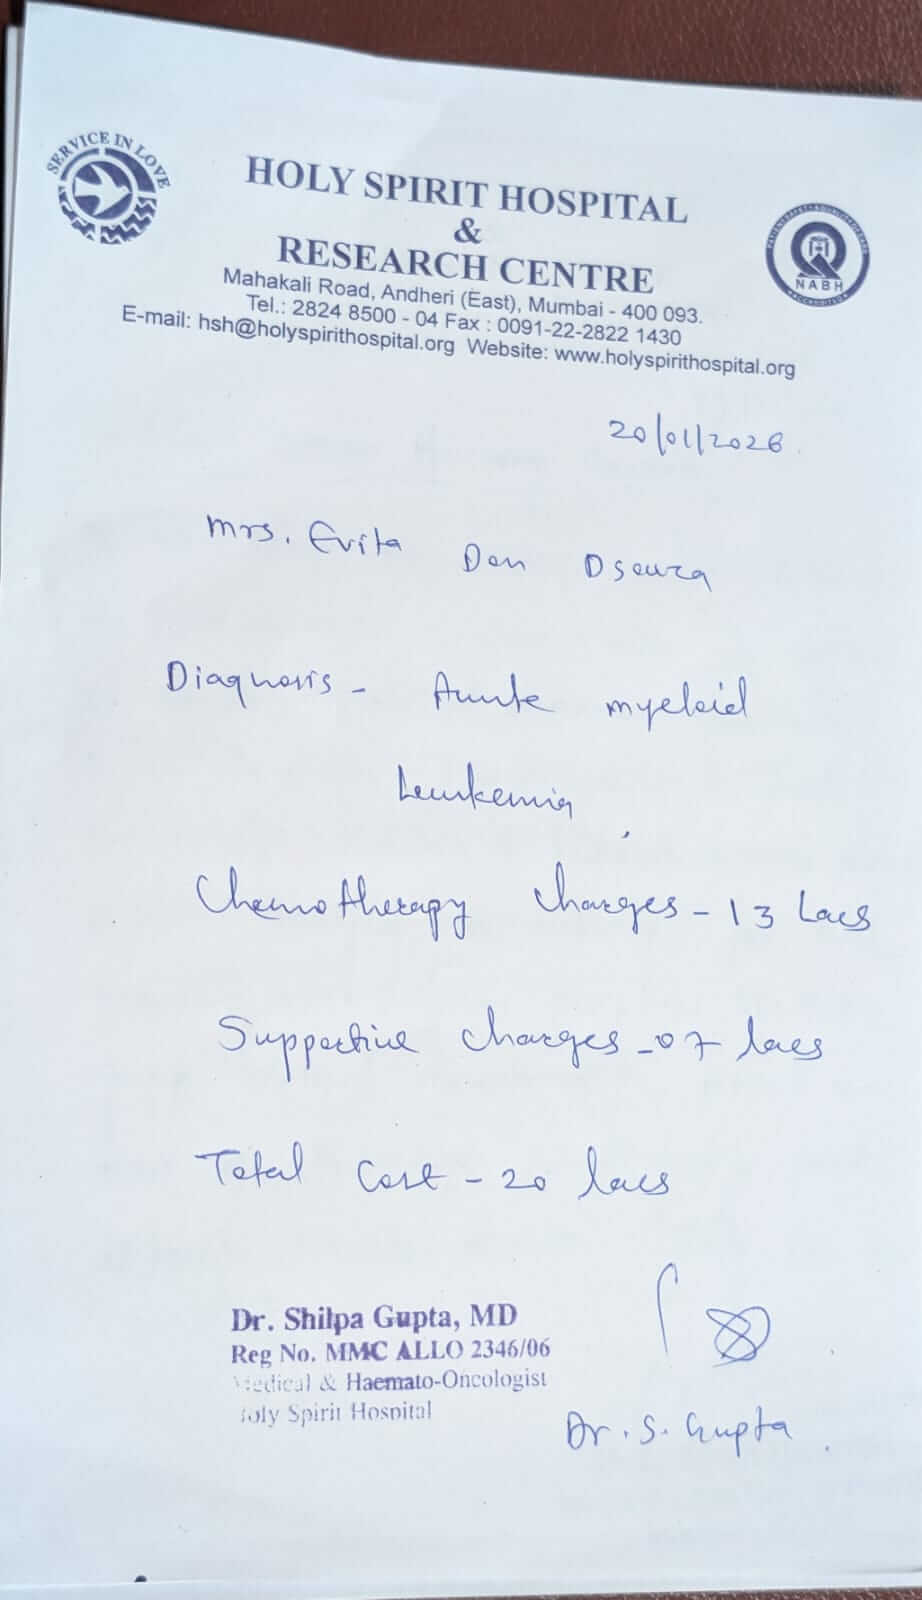 SERVICE IN LOVE
HOLY SPIRIT HOSPITAL
&
RESEARCH CENTRE
Mahakali Road, Andheri (East), Mumbai - 400 093.
Tel.: 2824 8500 - 04 Fax : 0091-22-2822 1430
E-mail: hsh@holyspirithospital.org Website: www.holyspirithospital.org
NABH
20/01/2026
Mrs. Evita Don Dsouza
Diagnosis - Acute myeloid
Leukemia
Chemotherapy Charges - 13 Lacs
Supportive charges - 07 lacs
Total Cost - 20 lacs
Dr. Shilpa Gupta, MD
Reg No. MMC ALLO 2346/06
Medical & Haemato-Oncologist
Holy Spirit Hospital
Dr. S. Gupta